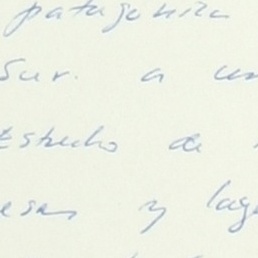 patagonica
Sur. a un
Estrecho de
esas y lago